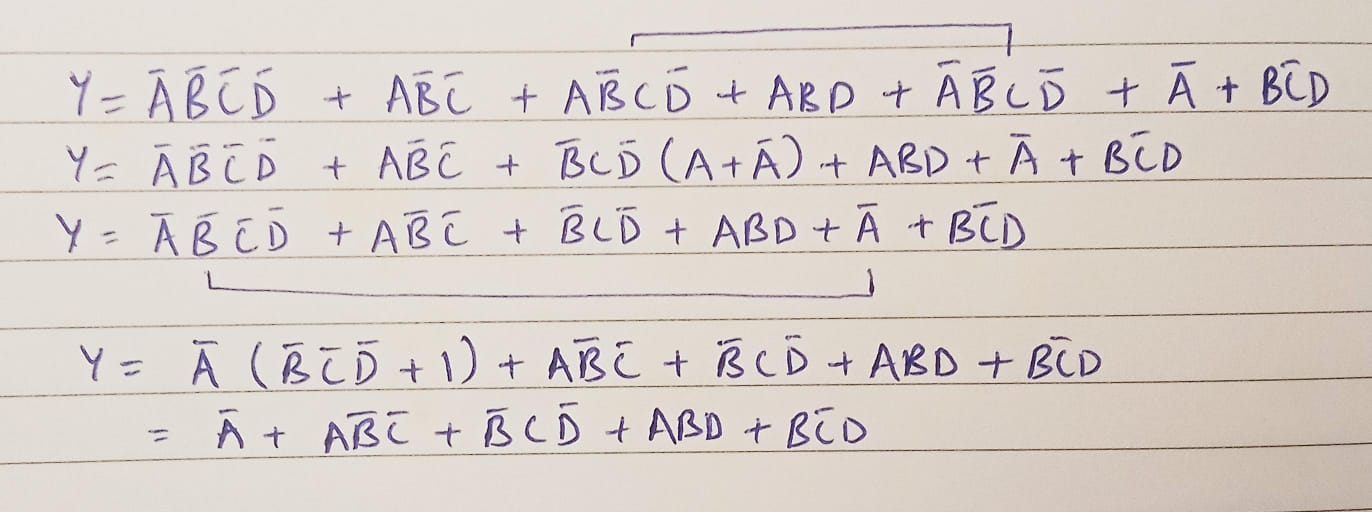 Y = ĀB̄C̄D̄ + AB̄C̄ + AB̄CD̄ + ABD + ĀB̄CD̄ + Ā + BC̄D
Y = ĀB̄C̄D̄ + AB̄C̄ + B̄CD̄ (A+Ā) + ABD + Ā + BC̄D
Y = ĀB̄C̄D̄ + AB̄C̄ + B̄CD̄ + ABD + Ā + BC̄D
Y = Ā (B̄C̄D̄ + 1) + AB̄C̄ + B̄CD̄ + ABD + BC̄D
= Ā + AB̄C̄ + B̄CD̄ + ABD + BC̄D